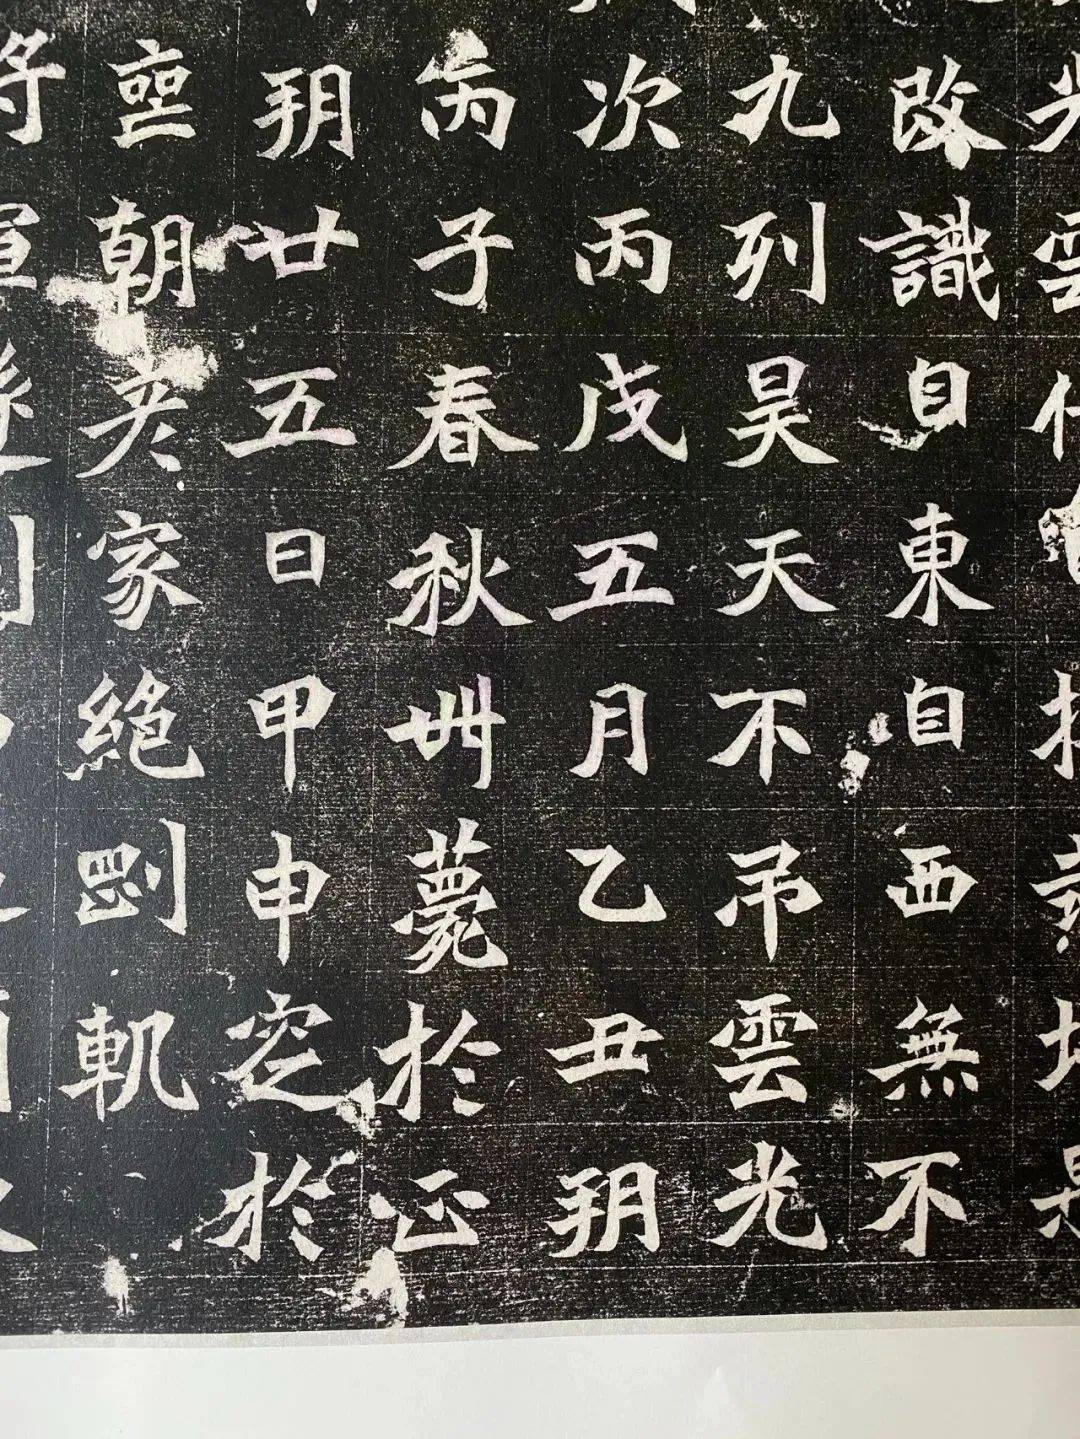 雲
改識自東自西無不
九列昊天不弔雲光
次丙戌五月乙丑朔
丙子春秋卅薨於正
朔廿五日甲申窆於
朝家絕剛軌
將軍